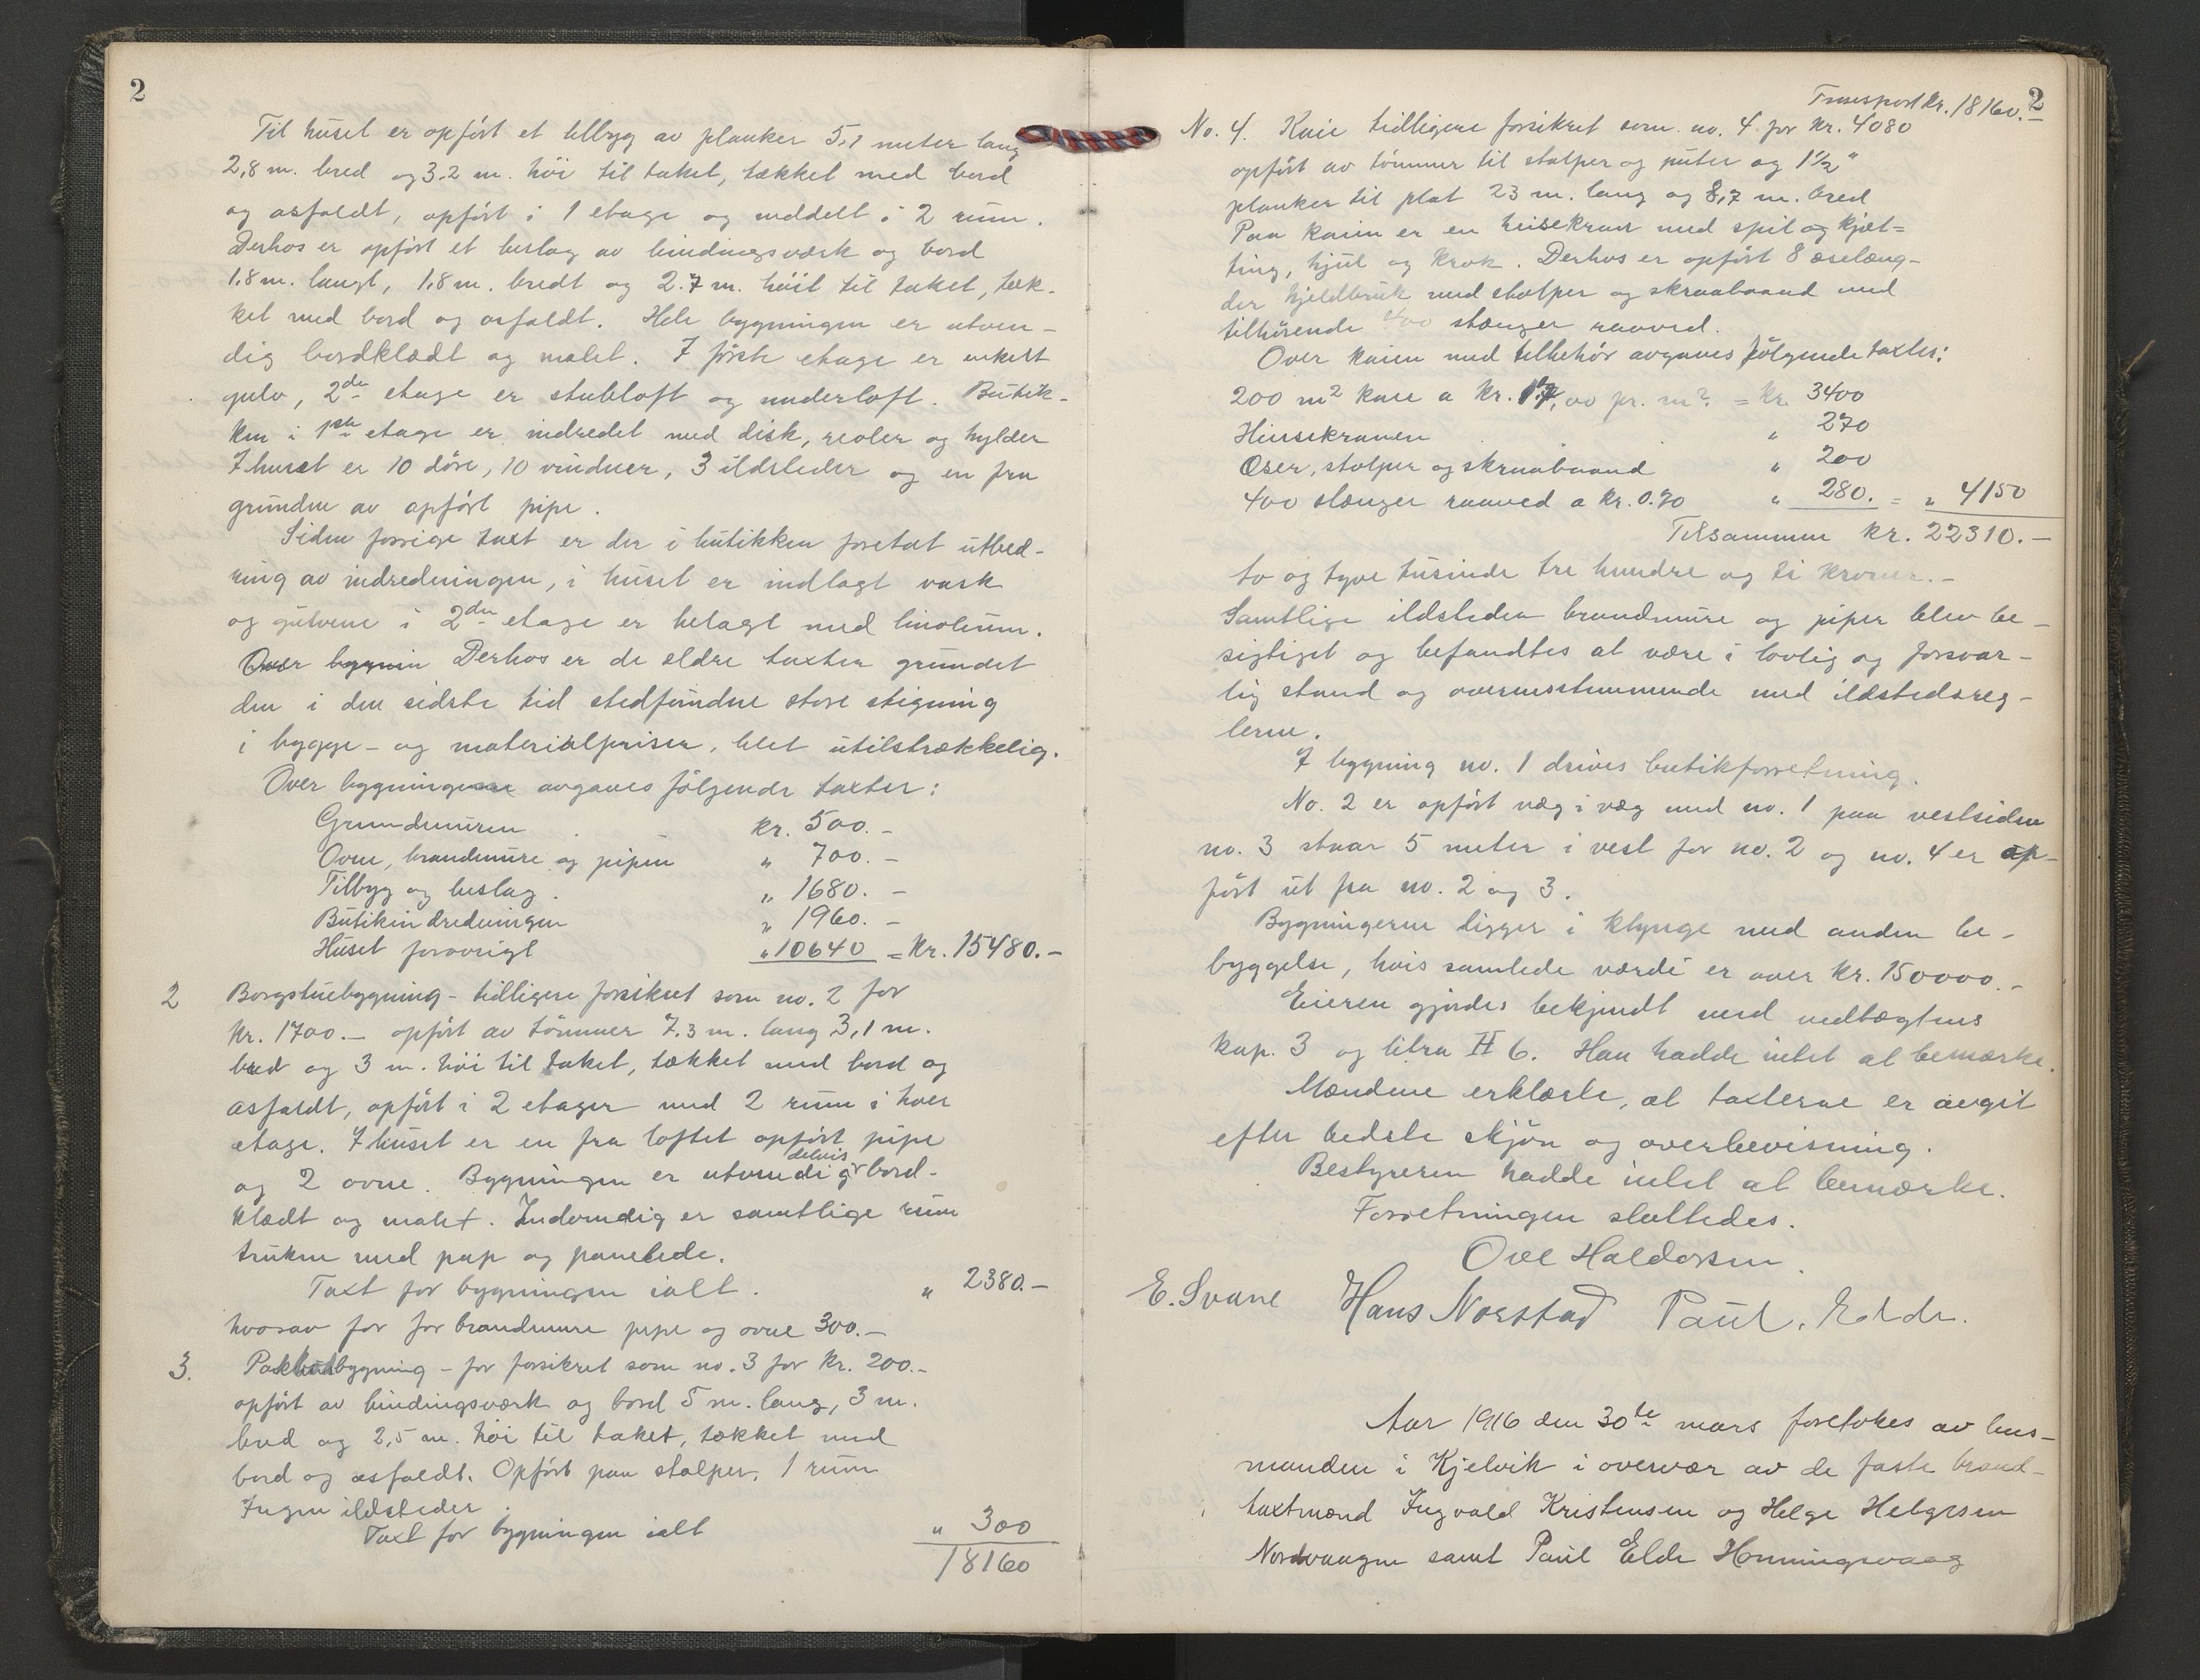 2
Til huset er opført et tilbyg av planker 5,1 meter lang
2,8 m. bred og 3.2 m. höi til taket, tækket med bord
og asfaldt, opført i 1 etage og inddelt i 2 rum.
Derhos er opført et beslag av bindingsværk og bord
1.8 m. langt, 1,8 m. bredt og 2.7 m. höit til taket, tæk-
ket med bord og asfaldt. Hele bygningen er utven-
dig bordklædt og malet. I første etage er enkelt
gulv, 2den etage er stubloft og underloft. Butik-
ken i 1ste etage er indredet med disk, reoler og hylder
I huset er 10 döre, 10 vinduer, 3 ildsteder og en fra
grunden av opført pipe.
Siden forrige taxt er der i butikken foretat utbed-
ring av indredningen, i huset er indlagt vask
og gulvene i 2den etage er belagt med linoleum.
Over bygnin Derhos er de ældre taxter grundet
den i den sidste tid stedfundne store stigning
i bygge- og materialpriser, blet utilstrækkelig.
Over bygningene avgaves følgende taxter:
Grundmuren kr. 500.-
Ovne, brandmure og pipen " 700.-
Tilbyg og beslag. " 1680.-
Butikindredningen " 1960.-
Huset forøvrigt " 10640 = Kr. 15480.-
2 Borgstuebygning - tidligere forsikret som no. 2 for
kr. 1700.- opført av tömmer 7.3 m. lang 3,1 m.
bred og 3 m. höi til taket, tækket med bord og
asfaldt, opført i 2 etager med 2 rum i hver
etage. I huset er en fra loftet opført pipe
og 2 ovne. Bygningen er utvendig delvis bord-
klædt og malet. Indvendig er samtlige rum
trukne med pap og panelede.
Taxt for bygningen ialt. " 2380.-
hvorav for for brandmure pipe og ovne 300.-
3. Pakhusbygning - for forsikret som no. 3 for kr. 200.-
opført av bindingsværk og bord 5 m. lang, 3 m.
bred og 2,5 m. höi til taket, tækket med
bord og asfaldt. Opført paa stolper. 1 rum
Ingen ildsteder.
Taxt for bygningen ialt " 300
18160
2
Transport kr. 18160.-
No. 4. Kaie tidligere forsikret som no. 4 for kr. 4080
opført av tömmer til stolper og puter og 1½"
planker til plat 23 m. lang og 8,7 m. bred
Paa kaien er en heisekran med spil og kjæt=
ting, hjul og krok. Derhos er opført 8 æselæng-
der hjeldbruk med stolper og skraabaand med
tilhørende 400 stænger raaved.
Over kaien med tilbehör avgaves følgende taxter:
200 m² kaie a kr. 17,00 pr. m² = kr. 3400
Heisekranen " 270
Æser, stolper og skraabaand " 200
400 stænger raaved a kr. 0.70 " 280. = " 4150
Tilsammen kr. 22310.-
to og tyve tusinde tre hundre og ti kroner.-
Samtlige ildsteder brandmure og piper blev be-
sigtiget og befandtes at være i lovlig og forsvar-
lig stand og overensstemmende med ildstedsreg-
lerne.
I bygning no. 1 drives butikforretning.
No. 2 er opført væg i væg med no. 1 paa vestsiden
no. 3 staar 5 meter i vest for no. 2 og no. 4 er op-
ført ut fra no. 2 og 3.
Bygningerne ligger i klynge med anden be-
byggelse, hvis samlede værdi er over kr. 150000.-
Eieren gjordes bekjendt med vedtægtens
kap. 3 og litra H 6. Han hadde intet at bemærke.
Mændene erklærte, at taxterne er avgit
efter bedste skjön og overbevisning.
Bestyreren hadde intet at bemærke.
Forretningen sluttedes.
Ove Haldorsen.
E. Svane Hans Norstad Paul. Elde.
Aar 1916 den 30te mars foretokes av lens-
manden i Kjelvik i overvær av de faste brand-
taxtmænd Ingvald Kristensen og Helge Helgesen
Nordvaagen samt Paul Elde Honningsvaag